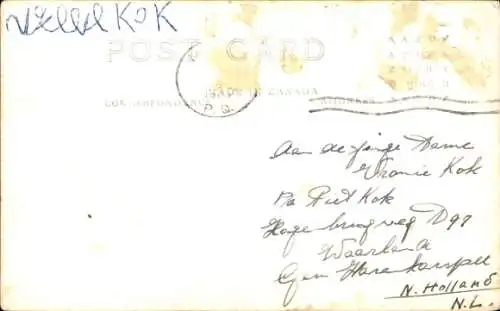 Kok
POST CARD
MADE IN CANADA
CORRESPONDENCE
ADDRESS
P.Q.
Aan de jonge Dame
Vronie Kok
Pa Piet Kok
Hogebrugweg D91
Waarland
Gem Harenkarspel
N. Holland
N.L.